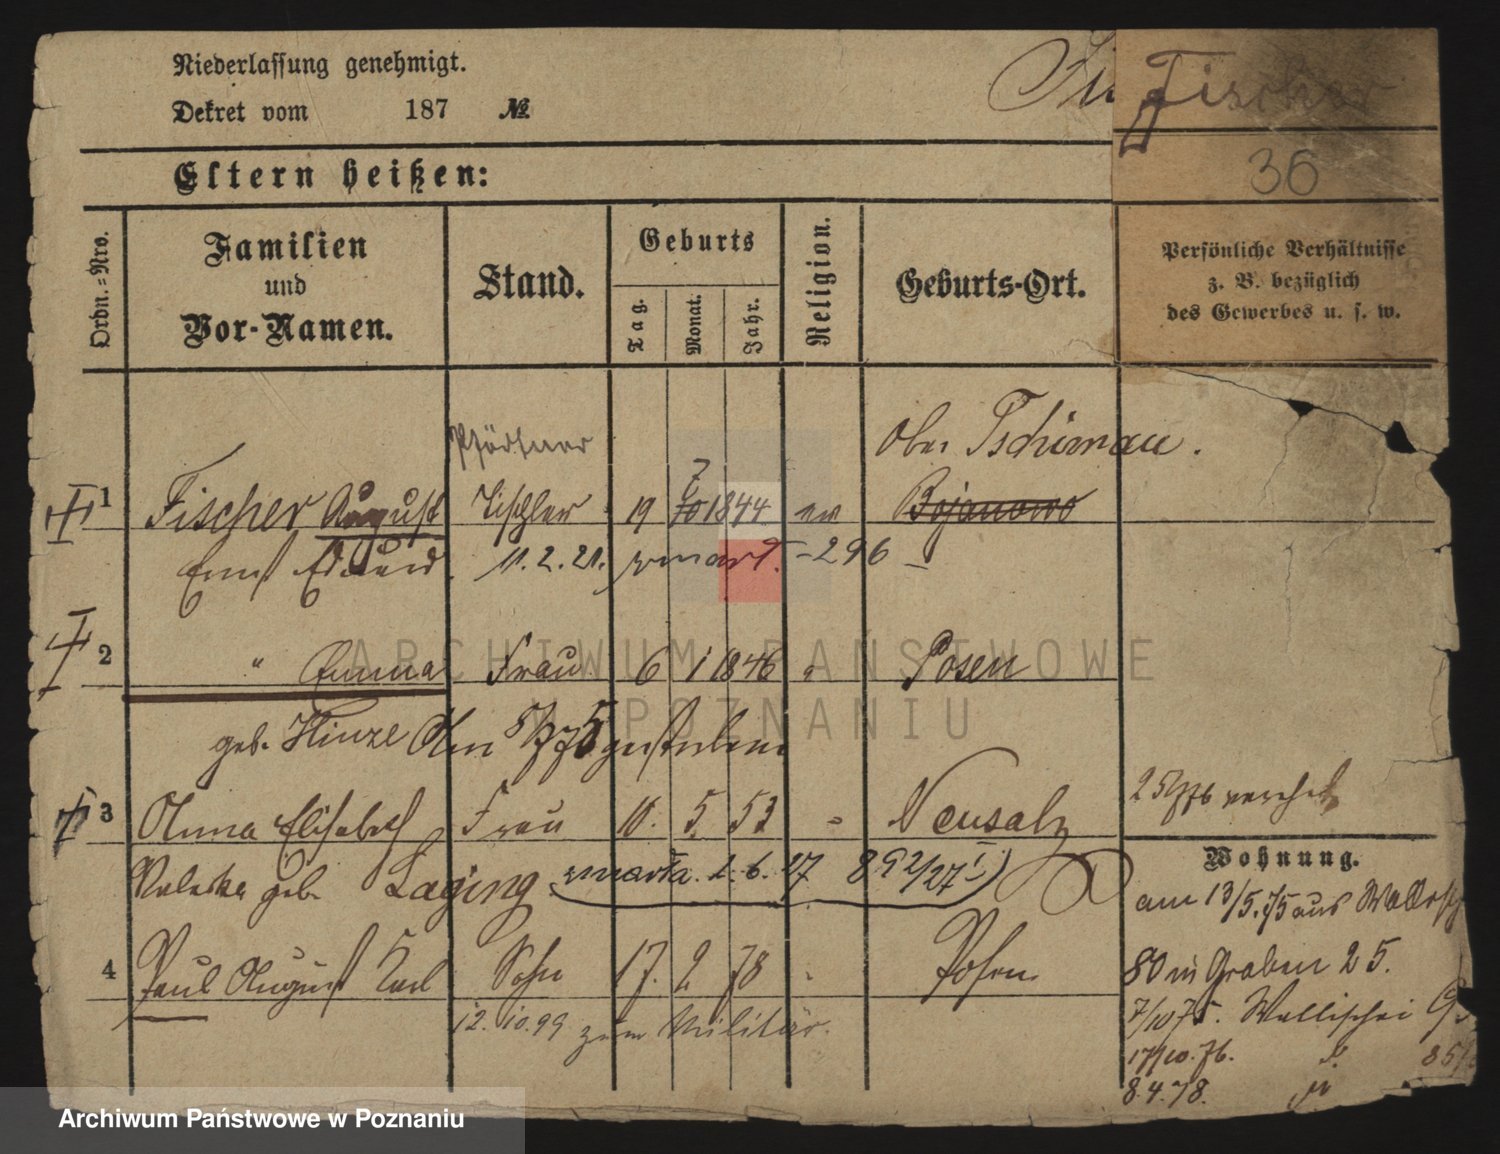 Niederlassung genehmigt.
Dekret vom 187 №
Fischer
36
Eltern heißen:
Ordn.-Nro.
Familien
und
Vor-Namen.
Stand.
Geburts
Tag.
Monat.
Jahr.
Religion.
Geburts-Ort.
Persönliche Verhältnisse
z. B. bezüglich
des Gewerbes u. s. w.
Pförtner
Ober Tschirnau.
1 Fischer August Tischler 19 7 10 1844 ev Bojanowo
Ernst Eduard. 11.2.21. zmart. - 296 -
2 " Emma Frau 6 1 1846 " Posen
geb. Hinze Am 5/7 75 gestorben
3 Anna Elisabeth Frau 10. 5. 53 " Neusalz
25/7 76 verehel.
Valeska geb. Laging zmarła. 1.6.27 892/27 I
Wohnung.
am 13/5.75 aus
4 Paul August Karl Sohn 17. 2 78 Posen
80 in Graben 25.
12.10.99 zum Militär.
7/10 75. Wallischei
17/10.76.
8.4.78.
ARCHIWUM PAŃSTWOWE
W POZNANIU
Archiwum Państwowe w Poznaniu